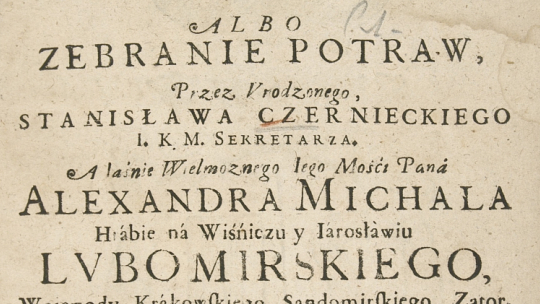 ALBO
ZEBRANIE POTRAW,
Przez Vrodzonego,
STANISŁAWA CZERNIECKIEGO
I. K. M. SEKRETARZA.
A Iáśnie Wielmożnego Iego Mośći Páná
ALEXANDRA MICHALA
Hrábie ná Wiśńiczu y Iarosłáwiu
LVBOMIRSKIEGO,
Woiewody Krákowskiego, Sandomirskiego, Zator-